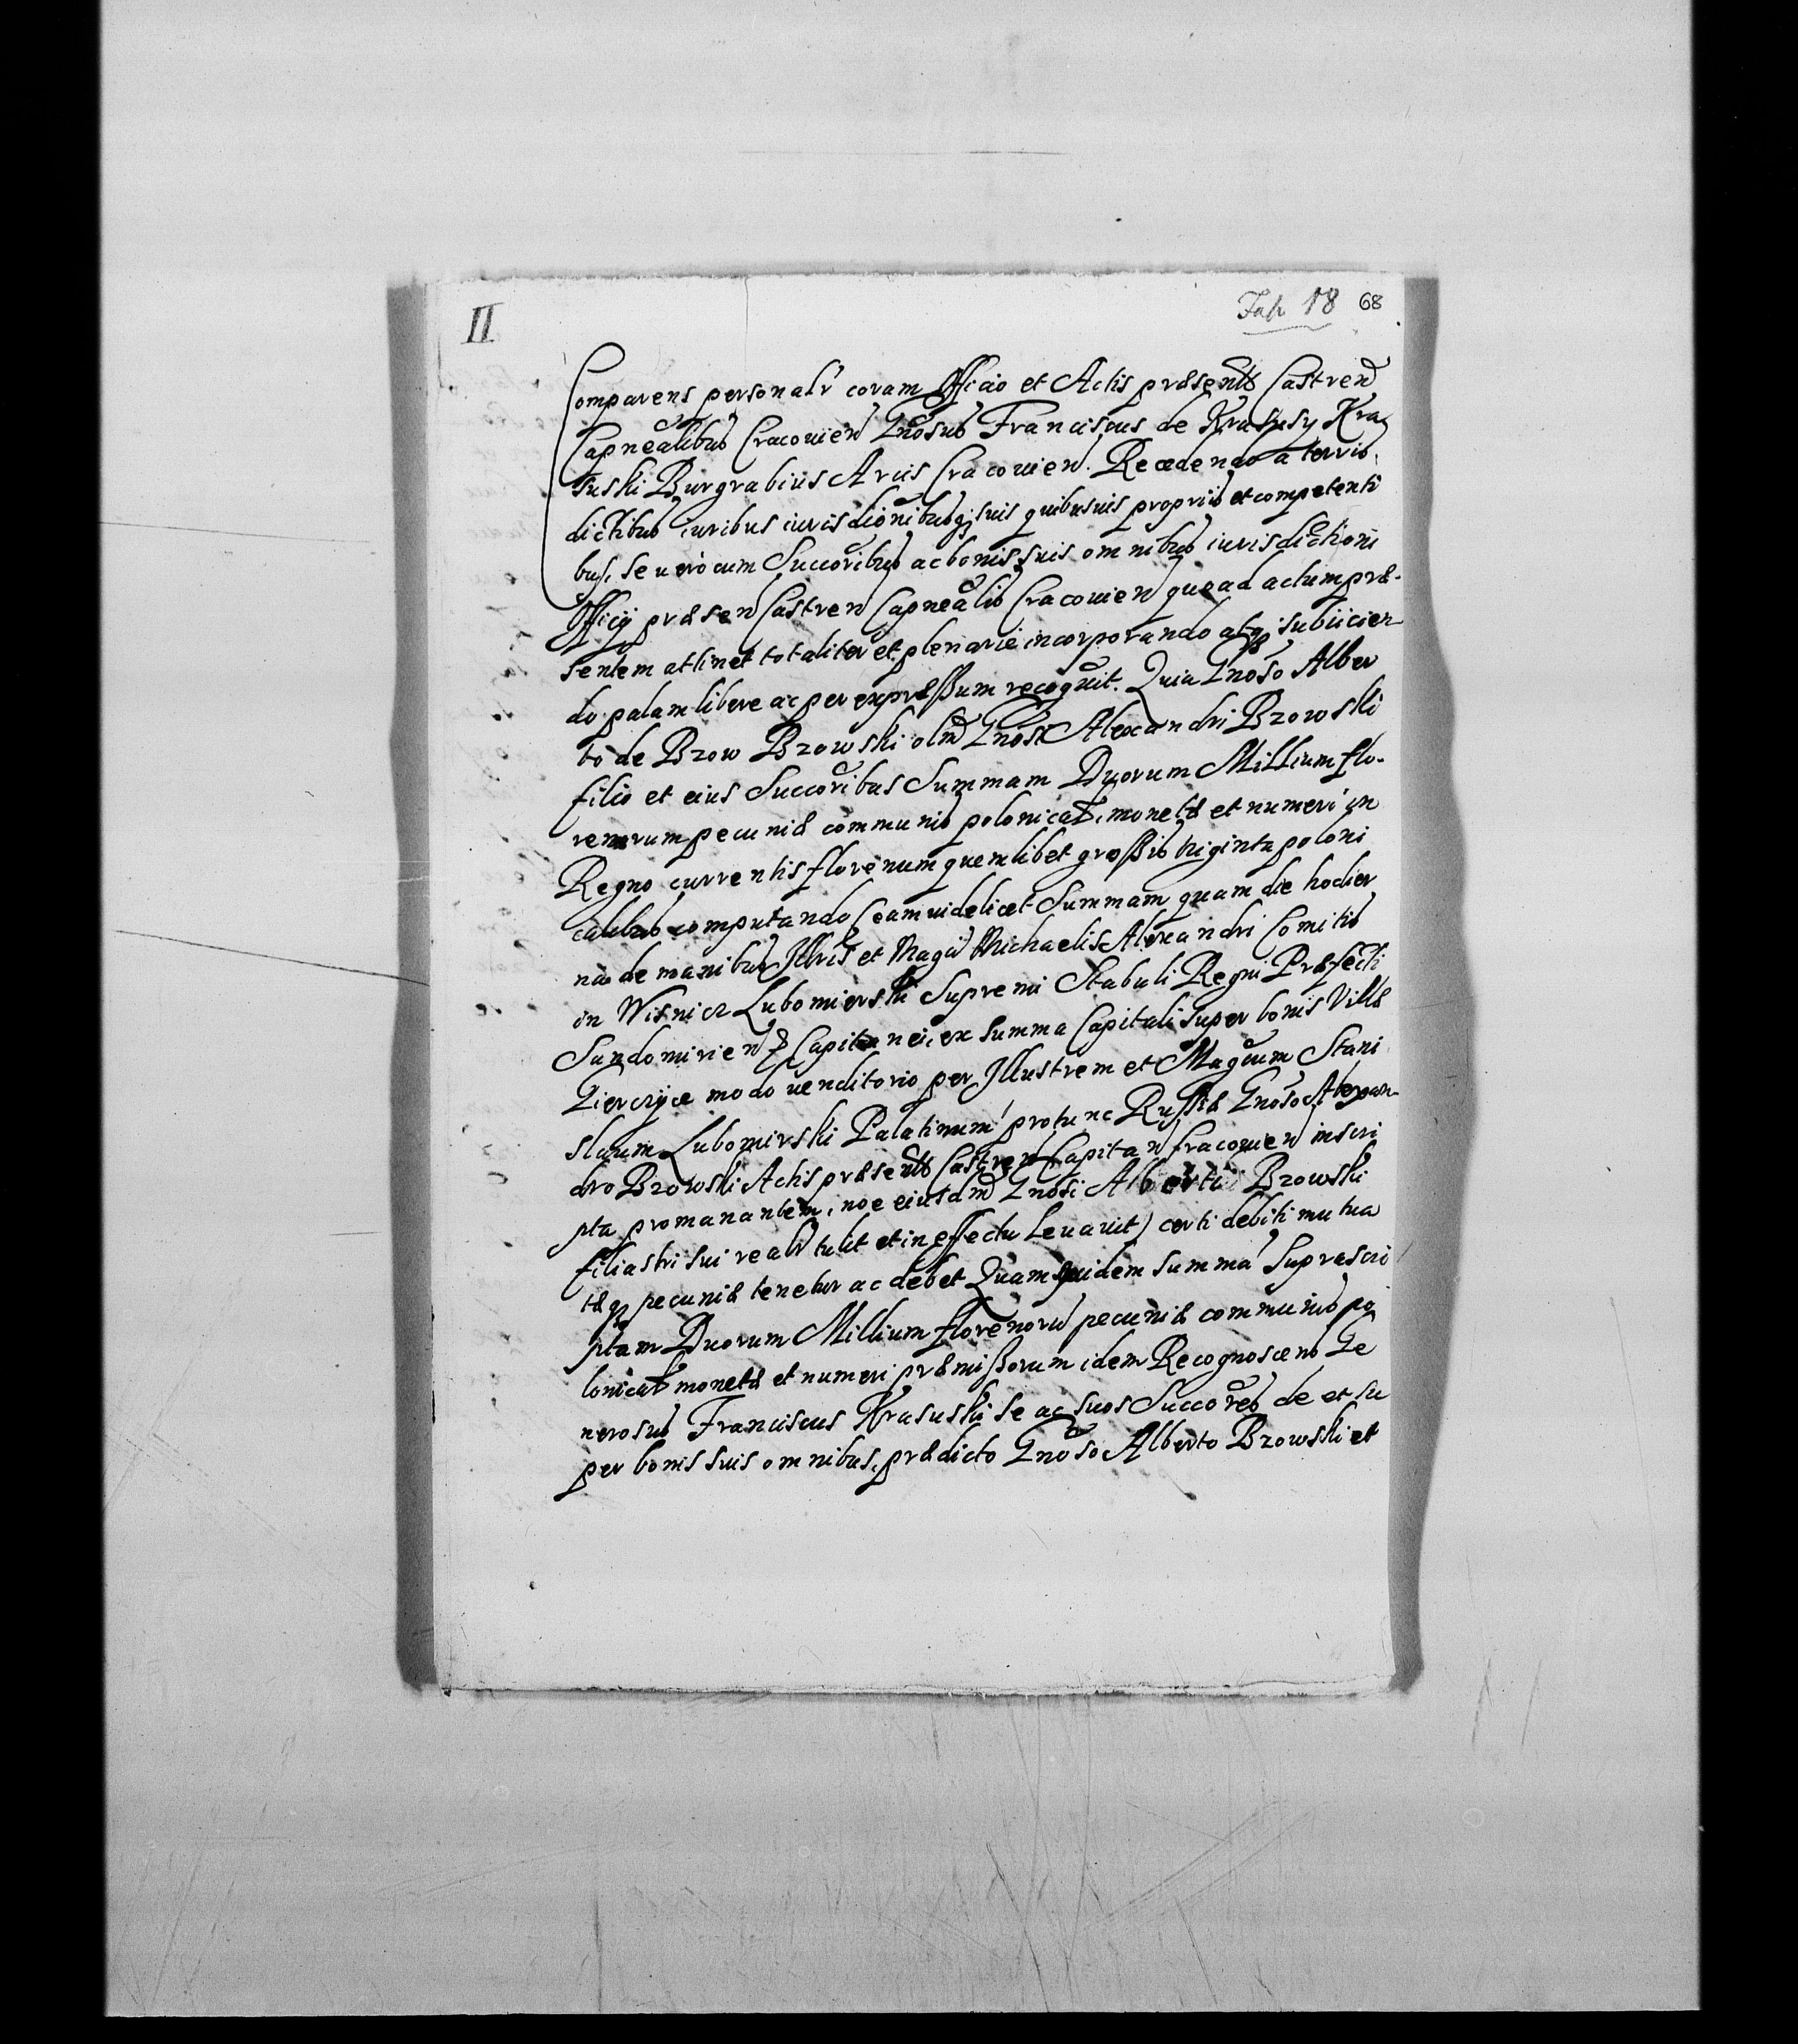 II
Fab 18 68
Comparens personalr coram Officio et Actis præsentb Castren
Capnealibus Cracouien Gnosus Franciscus de Krasusy Kra
suski Burgrabius Arcis Cracouien. Recedendo a terris,
dictibus iuribus iurisdionibusq; suis quibusuis propriis et competenti
bus, se uero cum Succoribus ac bonis suis omnibus iurisdictioni
Officij præsen Castren Capnealis Cracouien quo ad actum præ-
sentem attinet totaliter et plenarie incorporando atq; subiicien
do palam libere ac per expressum recognit. Quia Gnoso Alber
to de Bzow Bzowski olim Gnosi Alexandri Bzowski
filio et eius Succoribus Summam Duorum Millium flo-
renorum pecuniæ communis polonical, monetæ et numeri in
Regno currentis florenum quemlibet grossis triginta poloni
calibus computando (eam uidelicet Summam quam die hodier
na de manibus Illris et Magci Michaelis Alexandri Comitis
in Wisnicz Lubomierski Supremi Stabuli Regni Præfecti
Sandomirien & Capitanei, ex summa Capitali super bonis Villæ
Gierczyce modo uenditorio per Illustrem et Magcum Stani
slaum Lubomirski Palatinum protunc Russiæ Gnoso Alexan-
dro Bzowski Actis præsentb Castren Capitan Cracouien inscri
pta promanantem, noe eiusdm Gnosi Alberti Bzowski
filiastri sui realr tulit et in effectu leuauit) certi debiti mutua
tæq; pecuniæ tenetur ac debet Quamquidem summa Suprascri
ptam Duorum Millium florenoru pecuniæ communis po
lonical monetæ et numeri præmissorum idem Recognoscens Ge
nerosus Franciscus Krasuski se ac suos Succores de et su
per bonis suis omnibus, prædicto Gnoso Alberto Bzowski et